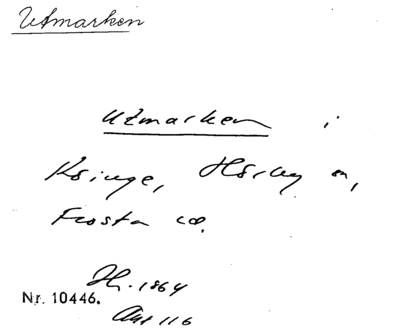 Utmarken
Utmarken i
Ksinge, Hörby sn,
Frosta hd.
Jh. 1864
Nr. 10446.
Akt 116